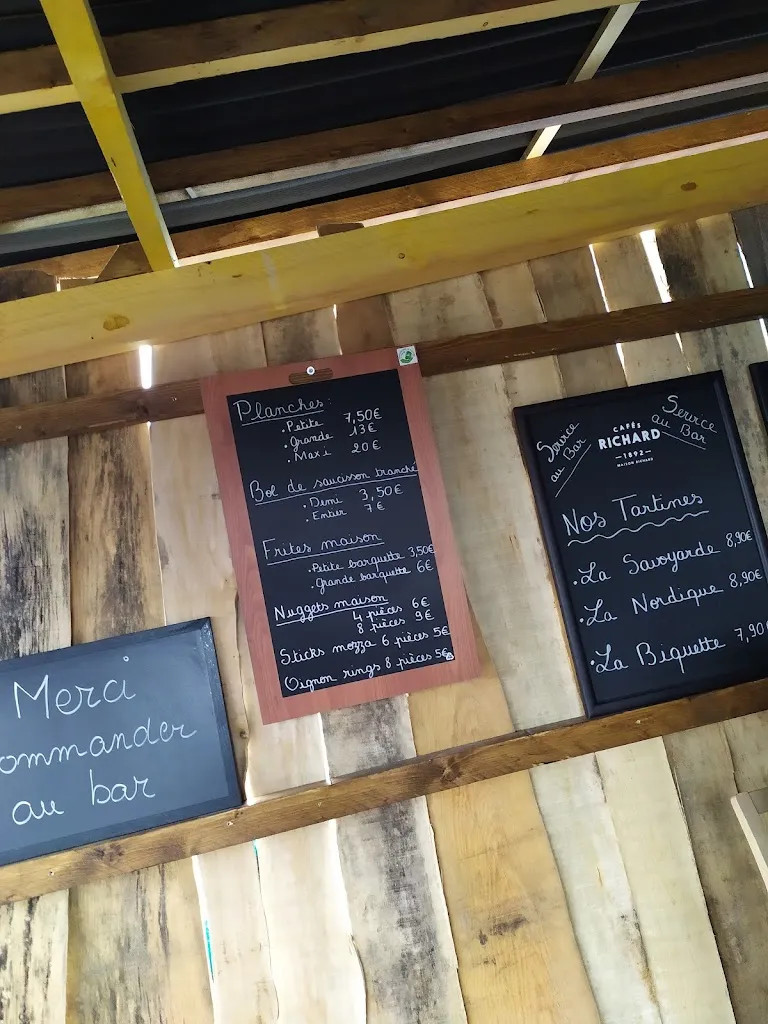 Planches:
• Petite 7,50€
• Grande 13€
• Maxi 20€
Bol de saucisson tranché
• Demi 3,50€
• Entier 7€
Frites maison
• Petite barquette 3,50€
• Grande barquette 6€
Nuggets maison
4 pièces 6€
8 pièces 9€
Sticks mozza 6 pièces 5€
Oignon rings 8 pièces 5€
Merci
commander
au bar
Service au Bar
CAFÉS
RICHARD
1892
MAISON RICHARD
Service au Bar
Nos Tartines
• La Savoyarde 8,90€
• La Nordique 8,90€
• La Biquette 7,90